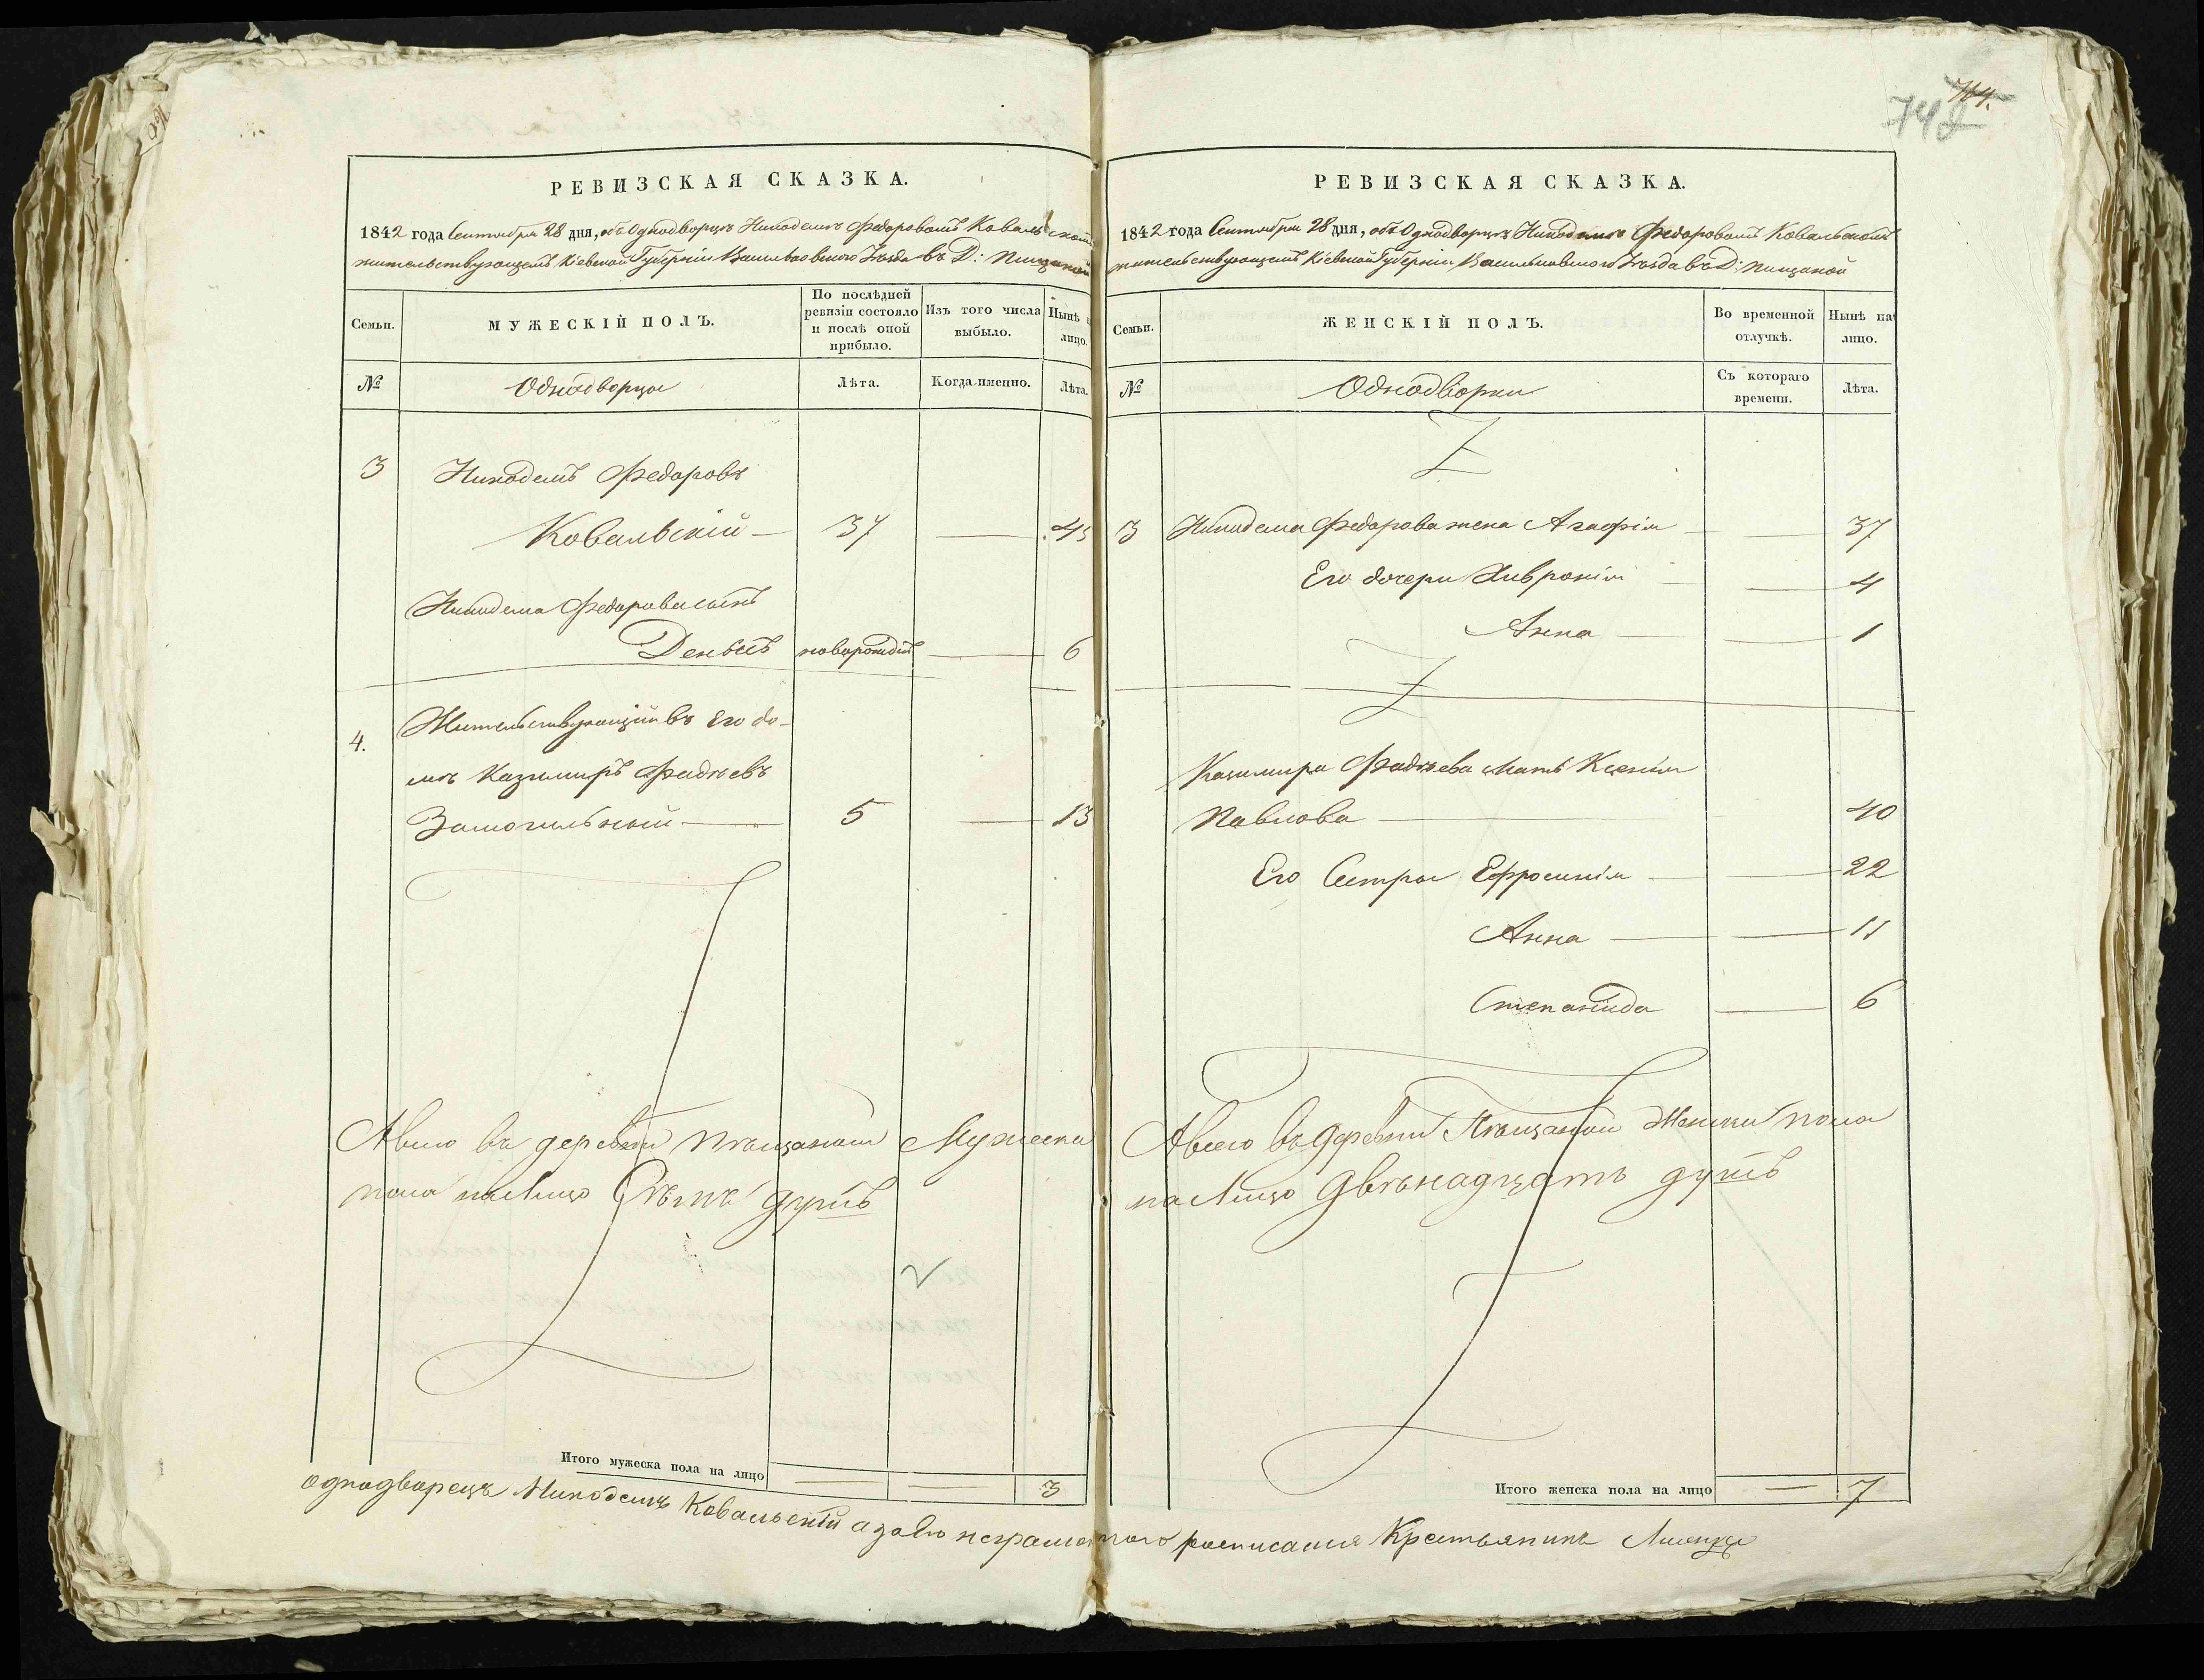 РЕВИЗСКАЯ СКАЗКА.
1842 года Сентября 28 дня, объ Однодворцѣ Никодимѣ Федоровомъ Ковальскомъ
жительствующемъ Кіевской Губерніи Васильковскаго Уѣзда въ Д: Пищаной
Семьи.
МУЖЕСКІЙ ПОЛЪ.
По послѣдней
ревизіи состояло
и послѣ оной
прибыло.
Изъ того числа
выбыло.
Нынѣ н
лицо.
№
Однодворцы
Лѣта.
Когда именно.
Лѣта.
3 Никодемъ Федоровъ
Ковальскій 37 45
Никодема Федорова сынъ
Денысъ новорожден 6
4. Жительствующій въ Его до-
мѣ Казимиръ Фадѣевъ
Замогильный 5 13
Авсего въ деревни Пѣщаной Мужеска
пола на Лицо душъ
Итого мужеска пола на лицо 3
742
714.
РЕВИЗСКАЯ СКАЗКА.
1842 года Сентября 28 дня, объ Однодворцѣ Никодимѣ Федоровомъ Ковальскомъ
жительствующемъ Кіевской Губерніи Васильковскаго Уѣзда въ Д: Пищаной
Семьи.
ЖЕНСКІЙ ПОЛЪ.
Во временной
отлучкѣ.
Нынѣ на
лицо.
№
Однодворки
Съ котораго
времени.
Лѣта.
3 Никодема Федорова жена Агафія 37
Его дочери Хивронія 4
Анна 1
Казимира Фадѣева Мать Ксенія
Павлова 40
Его Сестры Ефросинія 22
Анна 11
Степанида 6
Авсего въ деревни Пѣщаной Женски пола
на Лицо двѣнадцать душъ
Итого женска пола на лицо 7
однодворецъ Никодемъ Ковальскій а за его неграмотного росписался Крестьянинъ